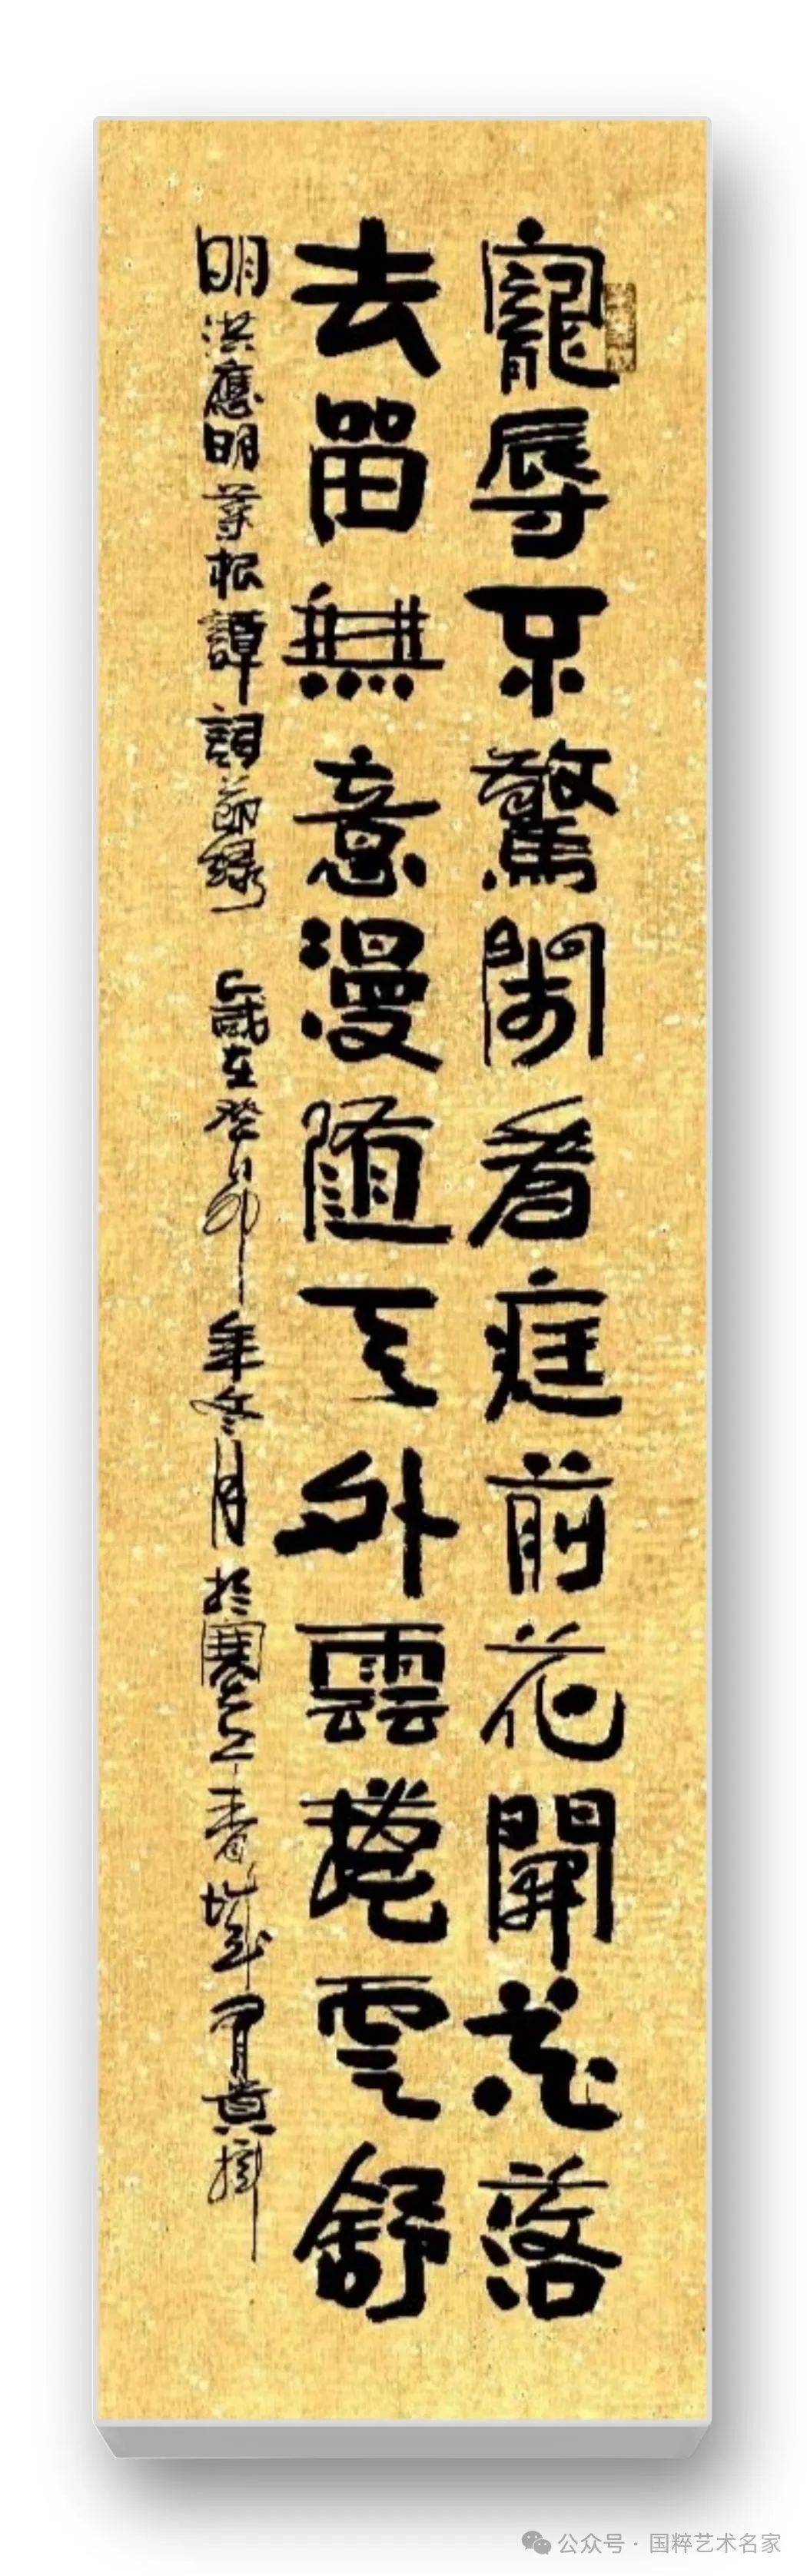 寵辱不驚閑看庭前花開花落
去留無意漫随天外雲卷雲舒
明洪應明菜根譚詞節録 歲在癸卯年冬月於塞上青城 貴
公众号·国粹艺术名家